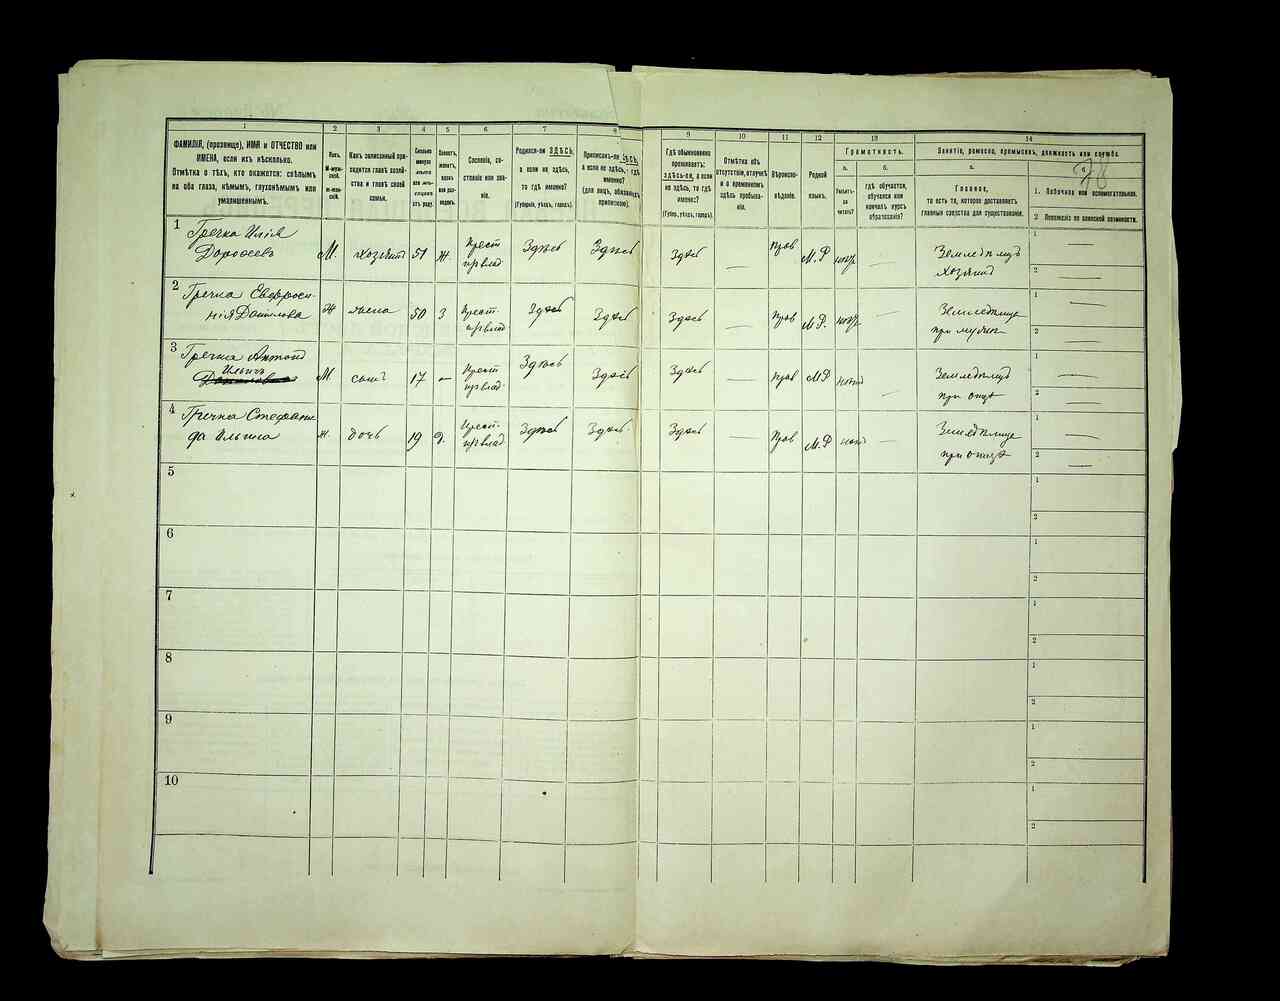 1 2 3 4 5 6 7 8 9 10 11 12 13 14
ФАМИЛІЯ, (прозвище), ИМЯ и ОТЧЕСТВО или
ИМЕНА, если ихъ нѣсколько.
Отмѣтка о тѣхъ, кто окажется: слѣпымъ
на оба глаза, нѣмымъ, глухонѣмымъ или
умалишеннымъ.
Полъ.
М-муж-
ской.
Ж-жен-
скій.
Какъ записанный при-
ходится главѣ хозяй-
ства и главѣ своей
семьи.
Сколько
минуло
лѣтъ
или мѣ-
сяцевъ
отъ роду.
Холостъ,
женатъ,
вдовъ
или раз-
веденъ.
Сословіе, со-
стояніе или зва-
ніе.
Родился-ли ЗДѢСЬ,
а если не здѣсь,
то гдѣ именно?
(Губернія, уѣздъ, городъ).
Приписанъ-ли ЗДѢСЬ,
а если не здѣсь, - гдѣ
именно?
(для лицъ, обязанныхъ
припискою).
Гдѣ обыкновенно
проживаетъ:
ЗДѢСЬ-ли, а если
не здѣсь, то гдѣ
именно?
(Губер., уѣздъ, городъ).
Отмѣтка объ
отсутствіи, отлучкѣ
и о временномъ
здѣсь пребыва-
ніи.
Вѣроиспо-
вѣданіе.
Родной
языкъ.
Грамотность.
а.
Умѣетъ-
ли
читать?
б.
гдѣ обучается,
обучался или
кончилъ курсъ
образованія?
Занятіе, ремесло, промыселъ, должность или служба.
а.
Главное,
то есть то, которое доставляетъ
главныя средства для существованія.
78
1. Побочное или вспомогательное.
2 Положеніе по воинской повинности.
1 Гречка Илія
Дорофеевъ М. хозяинъ 51 Ж. Крест Здѣсь Здѣсь Здѣсь — Прав М.Р — Земледѣлецъ
хозяинъ
1 —
2 —
2 Гречка Евфроси-
нія Данилова Ж жена 50 З Крест Здѣсь Здѣсь Здѣсь — Прав М.Р. —
1 —
2 —
3 Гречка Антонъ
Ильичъ
М. сынъ 17 — Крест Здѣсь Здѣсь Здѣсь — Прав М.Р — Земледѣлецъ
при отцѣ
1 —
2 —
4 Гречка Степани-
да Ильина Ж. дочь 19 Крест Здѣсь Здѣсь Здѣсь — Прав М.Р —
при отцѣ
1 —
2 —
5
1
2
6
1
2
7
1
2
8
1
2
9
1
2
10
1
2